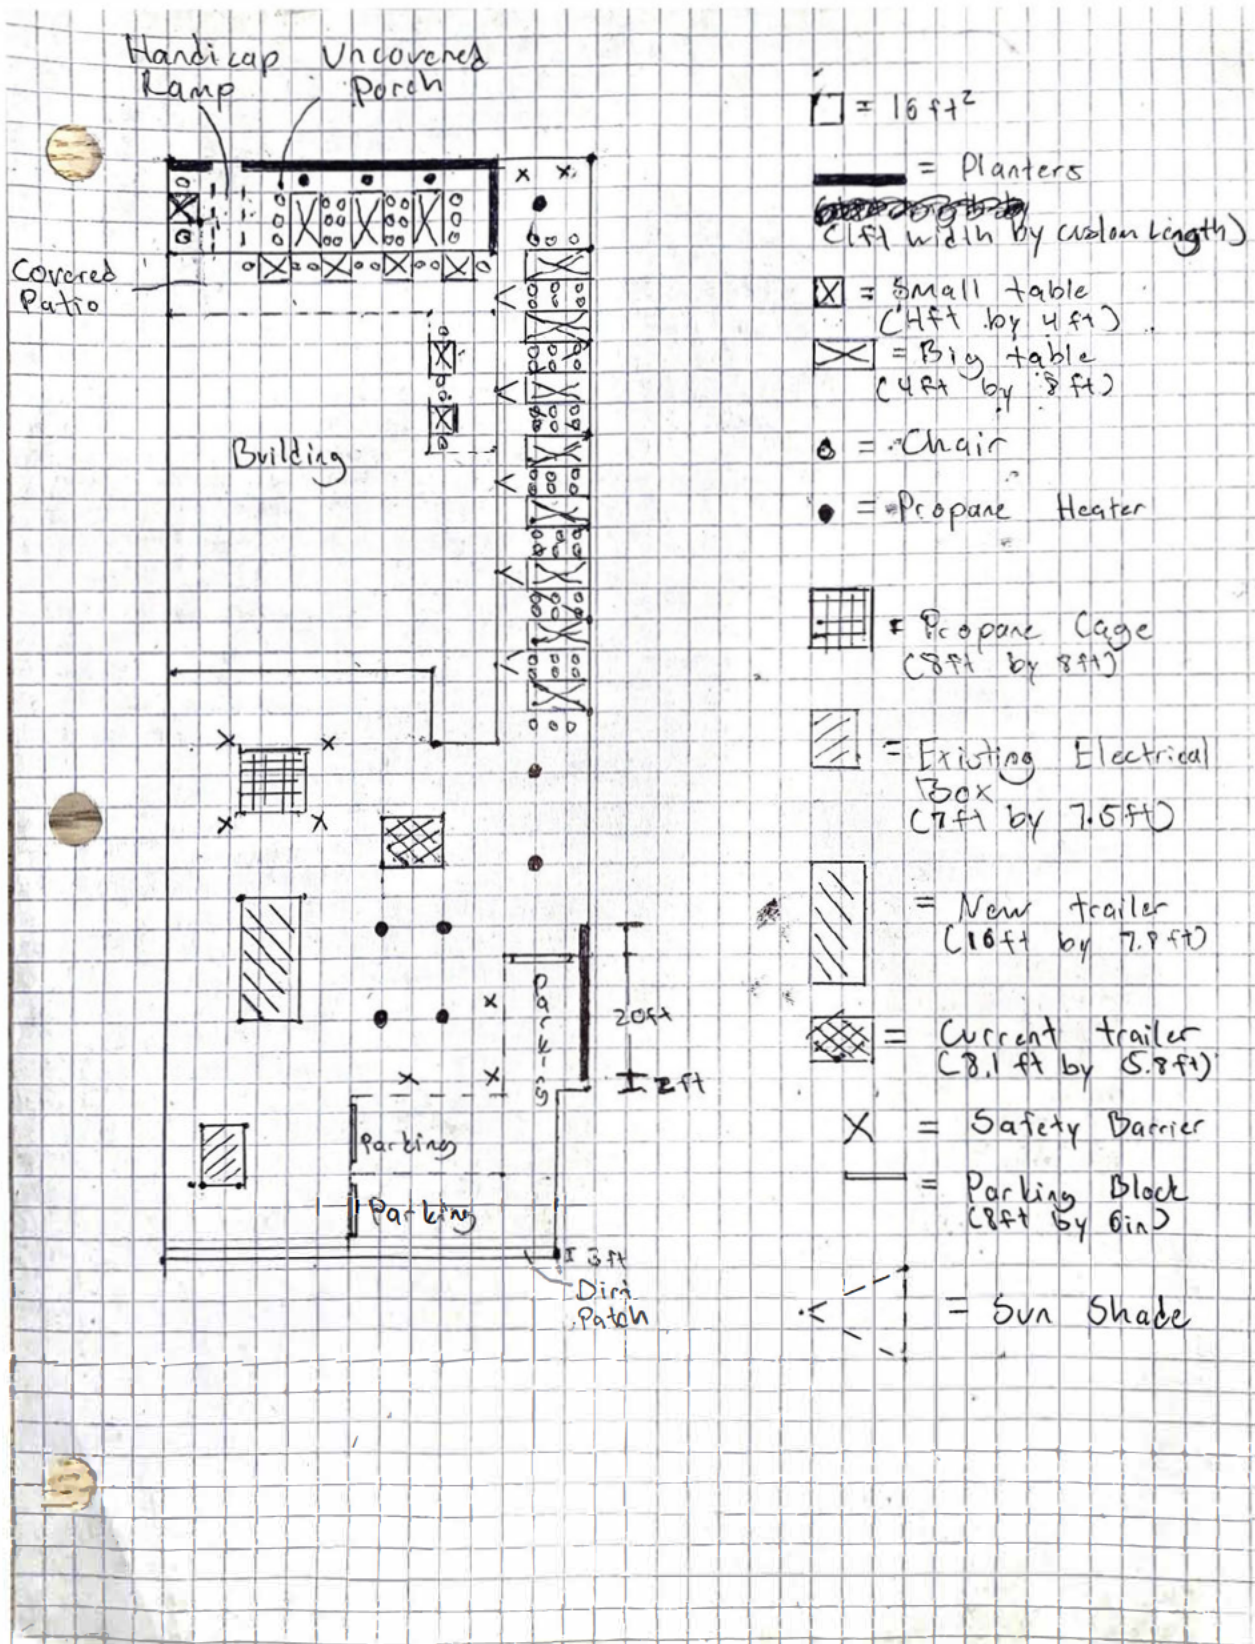 Handicap Ramp
Uncovered Porch
Covered Patio
Building
Parking
20ft
2ft
Parking
Parking
3ft
Dirt Patch
= 16 ft²
= Planters
(1ft width by custom length)
= Small table
(4ft by 4ft)
= Big table
(4ft by 8ft)
= Chair
= Propane Heater
= Propane Cage
(8ft by 8ft)
= Existing Electrical
Box
(7ft by 7.5ft)
= New trailer
(16ft by 7.8ft)
= Current trailer
(8.1ft by 5.8ft)
= Safety Barrier
= Parking Block
(8ft by 6in)
= Sun Shade